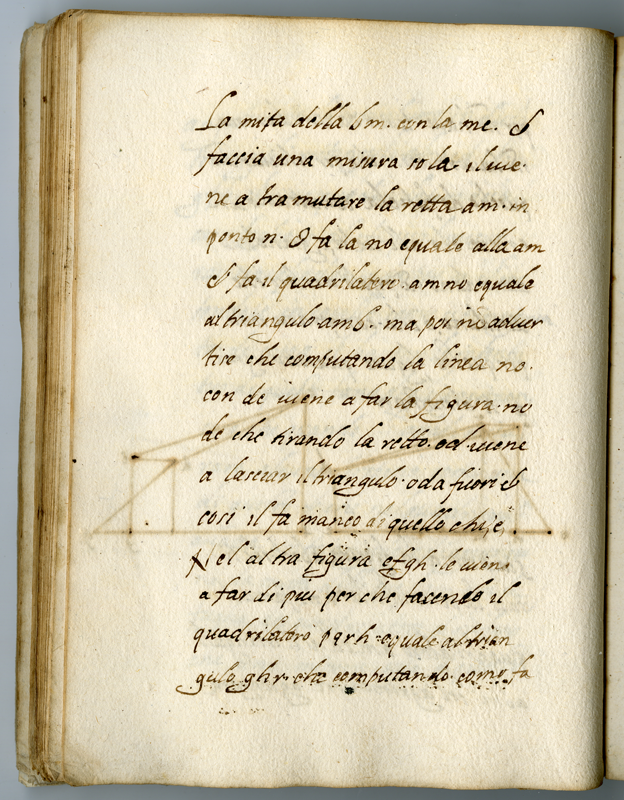 La mita della bm. con la me. &
faccia una misura sola. il vie.
ne a tramutare la retta am. in
ponto n. & fa la no equale alla am
& fa il quadrilatero. amno equale
al triangulo amb. ma poi no adver
tise che computando la linea no.
con de viene a far la figura. no
de che tirando la retto. od. viene
a lasciar il triangulo. oda fuori &
cosi il fa manco di quello ch'i, e,
Nel altra figura efgh. le vien.
a far di piu per che facendo il
quadrilatero pqrh equale al trian
gulo ghr. che computando. come, fa